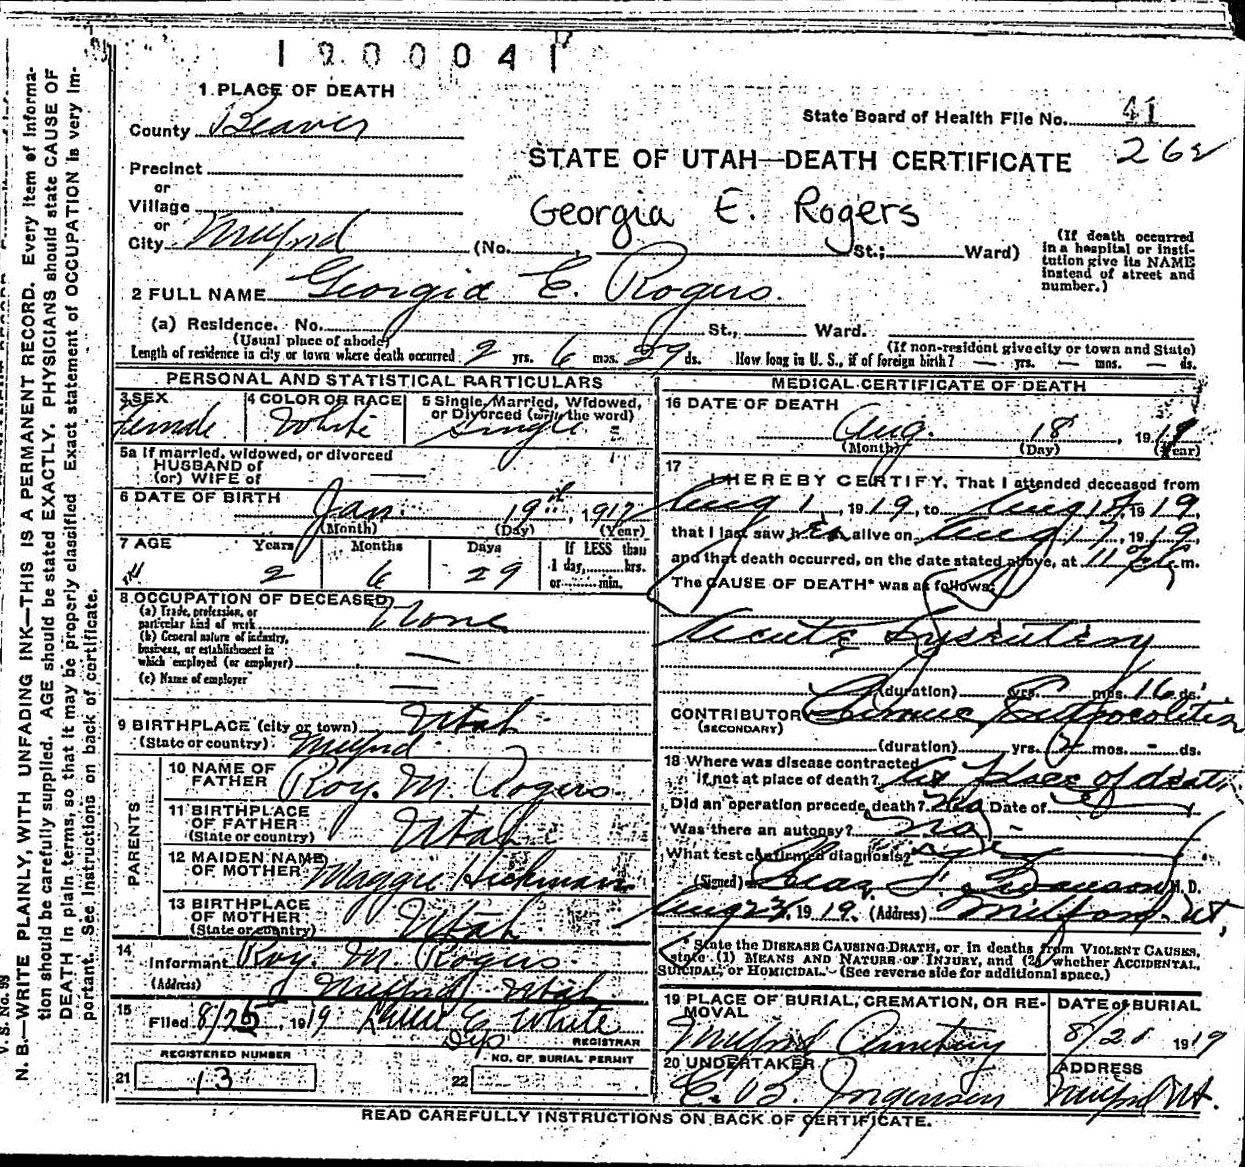 1900041
1 PLACE OF DEATH
County Beaver
State Board of Health File No. 41
262
Precinct
or
Village
or
City Milford
STATE OF UTAH—DEATH CERTIFICATE
Georgia E. Rogers
(No. , St.; Ward)
(If death occurred in a hospital or institution give its NAME instead of street and number.)
2 FULL NAME Georgia E. Rogers.
(a) Residence. No. St., Ward.
(Usual place of abode)
(If non-resident give city or town and State)
Length of residence in city or town where death occurred 2 yrs. 6 mos. 29 ds. How long in U. S., if of foreign birth? — yrs. — mos. — ds.
PERSONAL AND STATISTICAL PARTICULARS
3 SEX Female
4 COLOR OR RACE White
5 Single, Married, Widowed, or Divorced (write the word) Single
5a If married, widowed, or divorced
HUSBAND of
(or) WIFE of
6 DATE OF BIRTH Jan. 19th, 1917
(Month) (Day) (Year)
7 AGE Years 2 Months 6 Days 29
If LESS than 1 day, hrs. or min.
8 OCCUPATION OF DECEASED
(a) Trade, profession, or particular kind of work None
(b) General nature of industry, business, or establishment in which employed (or employer) —
(c) Name of employer —
9 BIRTHPLACE (city or town) Utah
(State or country) Milford
PARENTS
10 NAME OF FATHER Roy. M. Rogers.
11 BIRTHPLACE OF FATHER (State or country) Utah
12 MAIDEN NAME OF MOTHER Maggie Hickman
13 BIRTHPLACE OF MOTHER (State or country) Utah
14 Informant Roy. M. Rogers
(Address) Milford Utah
15 Filed 8/25, 1919 E. White
Dep REGISTRAR
REGISTERED NUMBER
21 13
NO. OF BURIAL PERMIT
22
MEDICAL CERTIFICATE OF DEATH
16 DATE OF DEATH
Aug. 18, 1919
(Month) (Day) (Year)
17 I HEREBY CERTIFY, That I attended deceased from
Aug 1, 1919, to Aug 18, 1919,
that I last saw her alive on Aug 17, 1919,
and that death occurred, on the date stated above, at 11 m.
The CAUSE OF DEATH* was as follows:
Acute Dysentery
(duration) yrs. mos. 16 ds.
CONTRIBUTORY Chronic
(SECONDARY)
(duration) yrs. 2 mos. - ds.
18 Where was disease contracted
if not at place of death? At place of death
Did an operation precede death? No Date of
Was there an autopsy? No
What test confirmed diagnosis?
(Signed) Chas. Swanson M. D.
Aug 1919. (Address) Milford. Ut,
* State the DISEASE CAUSING DEATH, or in deaths from VIOLENT CAUSES, state (1) MEANS AND NATURE OF INJURY, and (2) whether ACCIDENTAL, SUICIDAL, or HOMICIDAL. (See reverse side for additional space.)
19 PLACE OF BURIAL, CREMATION, OR REMOVAL Milford Cemetery
DATE of BURIAL 8/20 1919
20 UNDERTAKER C. B. Jorgensen
ADDRESS Milford Ut.
READ CAREFULLY INSTRUCTIONS ON BACK OF CERTIFICATE.
V. S. No. 99
N. B.—WRITE PLAINLY, WITH UNFADING INK—THIS IS A PERMANENT RECORD. Every item of information should be carefully supplied. AGE should be stated EXACTLY. PHYSICIANS should state CAUSE OF DEATH in plain terms, so that it may be properly classified. Exact statement of OCCUPATION is very important. See instructions on back of certificate.